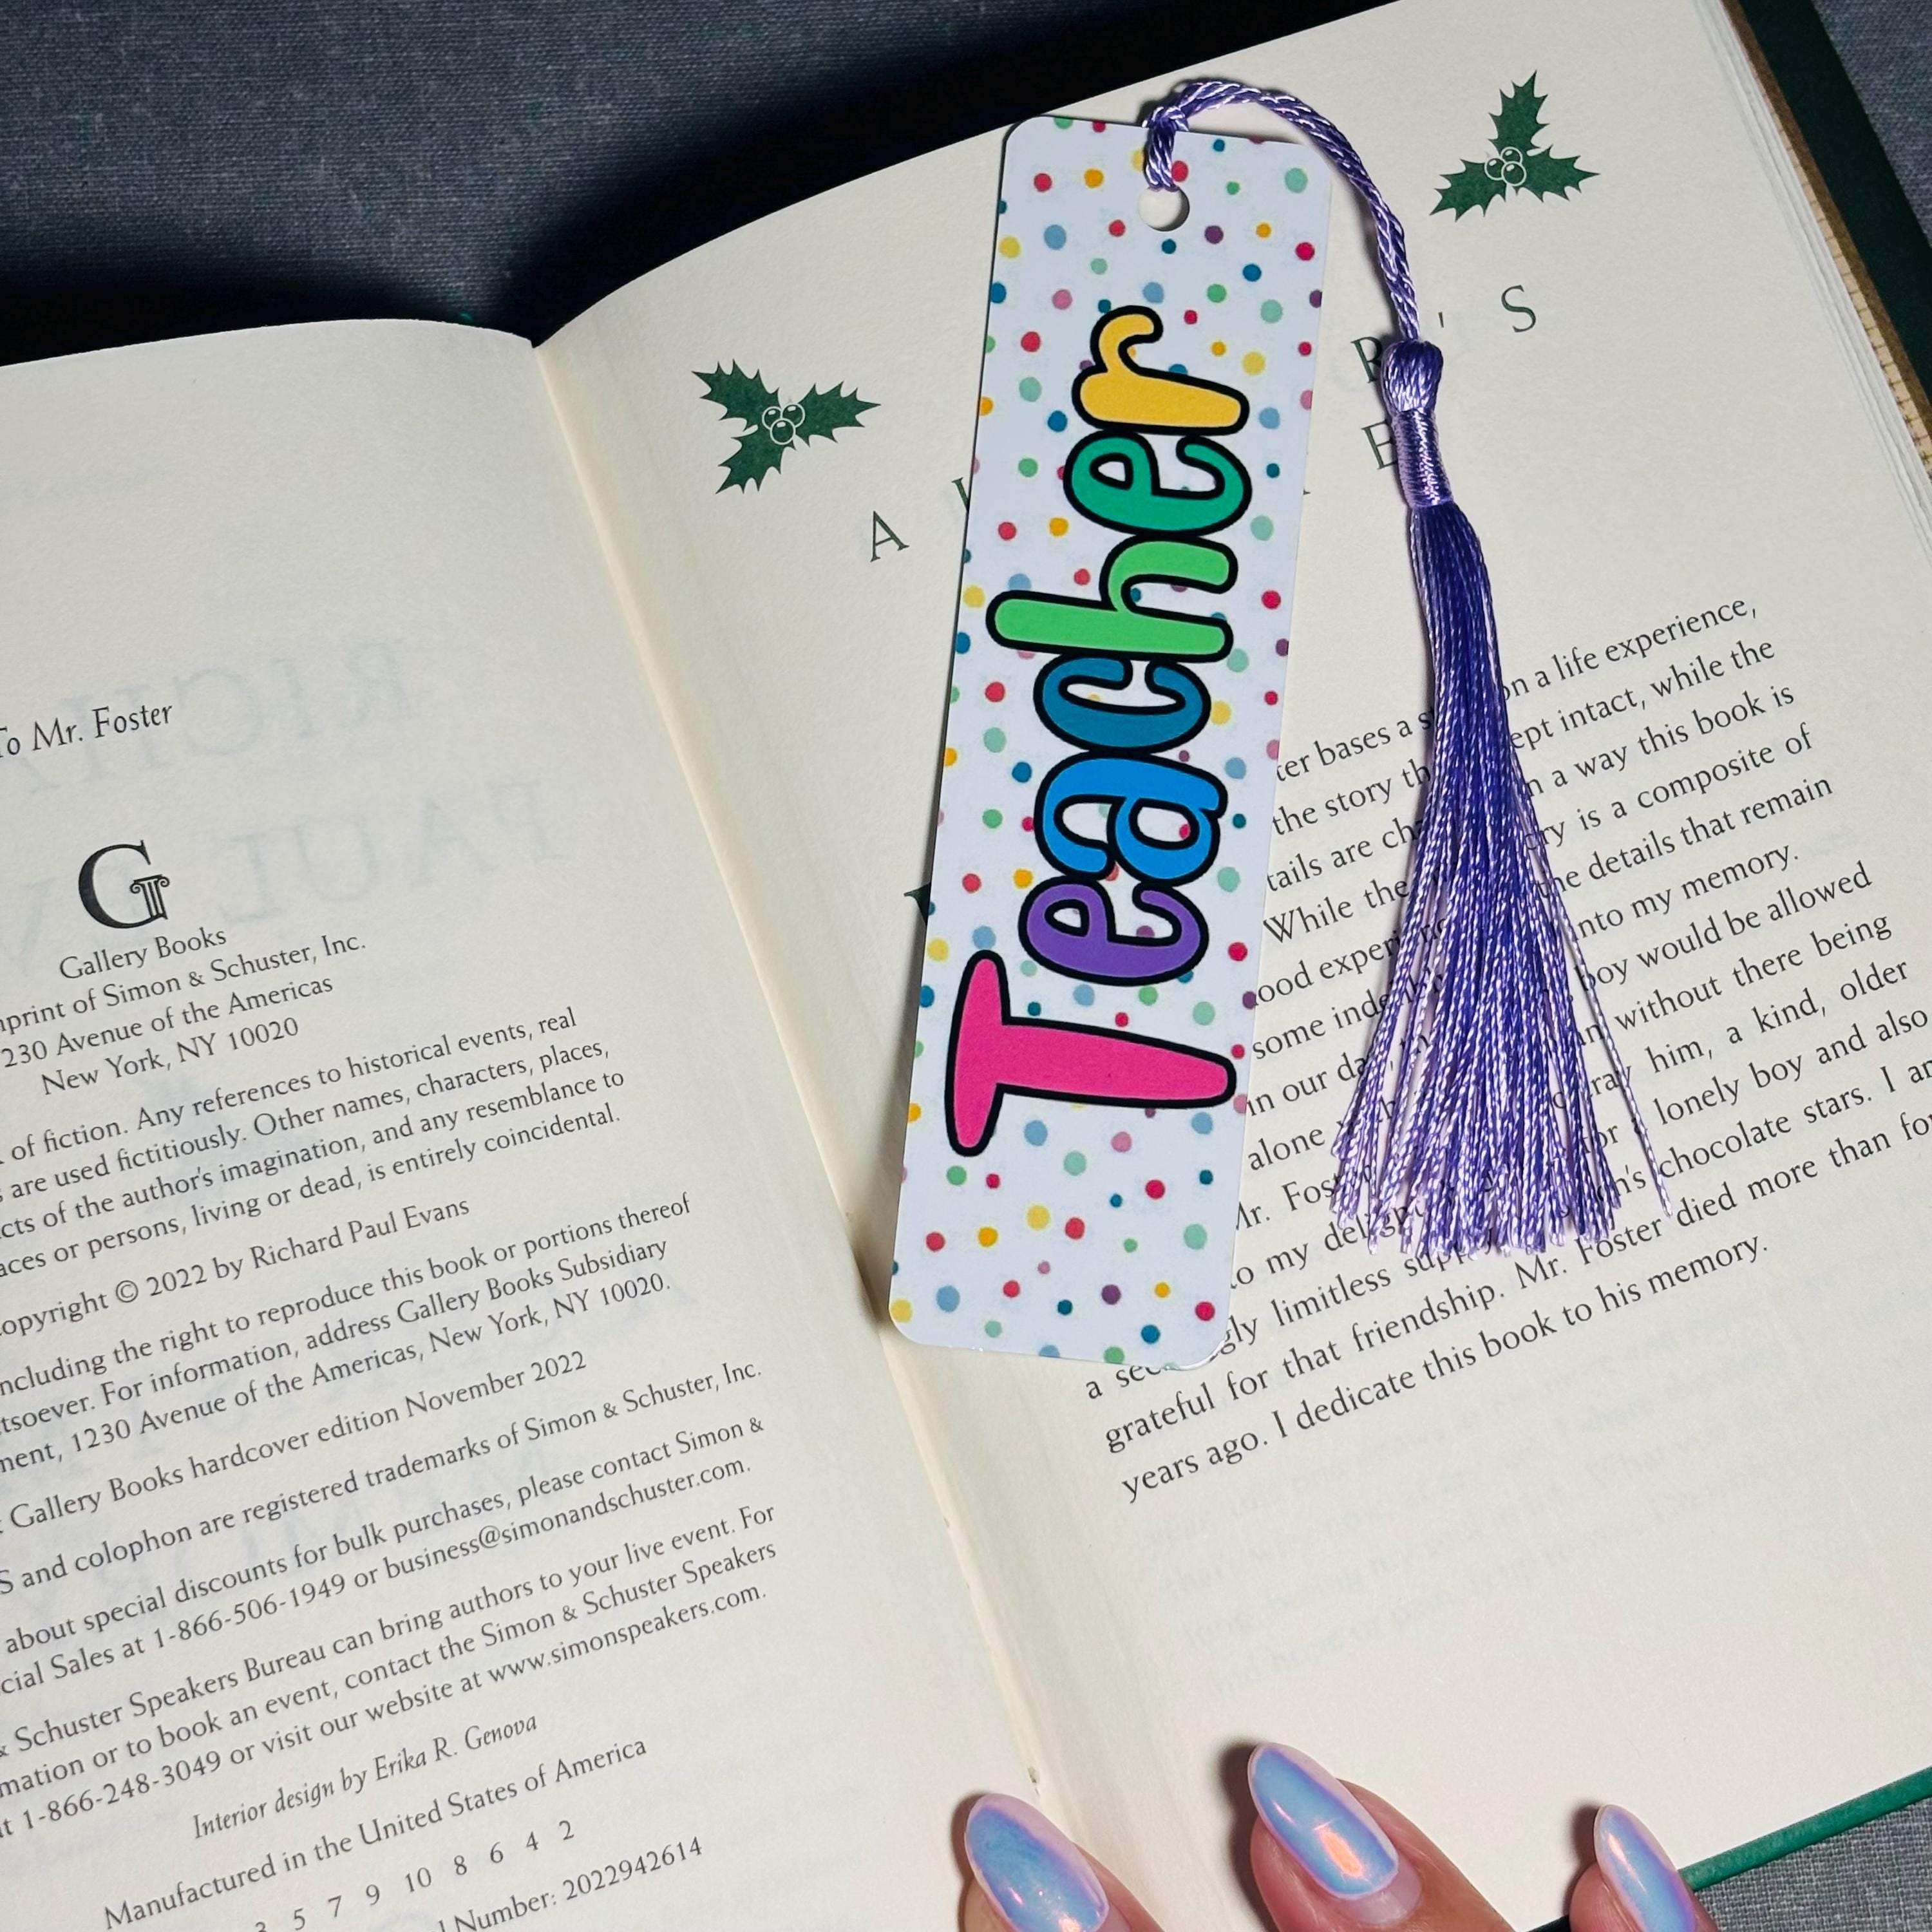 To Mr. Foster
G
Gallery Books
imprint of Simon & Schuster, Inc.
1230 Avenue of the Americas
New York, NY 10020
of fiction. Any references to historical events, real
are used fictitiously. Other names, characters, places,
of the author's imagination, and any resemblance to
or persons, living or dead, is entirely coincidental.
Copyright © 2022 by Richard Paul Evans
including the right to reproduce this book or portions thereof
For information, address Gallery Books Subsidiary
1230 Avenue of the Americas, New York, NY 10020.
Gallery Books hardcover edition November 2022
and colophon are registered trademarks of Simon & Schuster, Inc.
about special discounts for bulk purchases, please contact Simon &
Sales at 1-866-506-1949 or business@simonandschuster.com.
& Schuster Speakers Bureau can bring authors to your live event. For
or to book an event, contact the Simon & Schuster Speakers
at 1-866-248-3049 or visit our website at www.simonspeakers.com.
Interior design by Erika R. Genova
Manufactured in the United States of America
3 5 7 9 10 8 6 4 2
Number: 2022942614
Teacher
A R ' S
E
on a life experience,
bases a intact, while the
the story a way this book is
are is a composite of
While the the details that remain
into my memory.
boy would be allowed
some without there being
in our him, a kind, older
alone lonely boy and also
chocolate stars. I
to my Foster died more than
limitless
grateful for that friendship. Mr.
years ago. I dedicate this book to his memory.